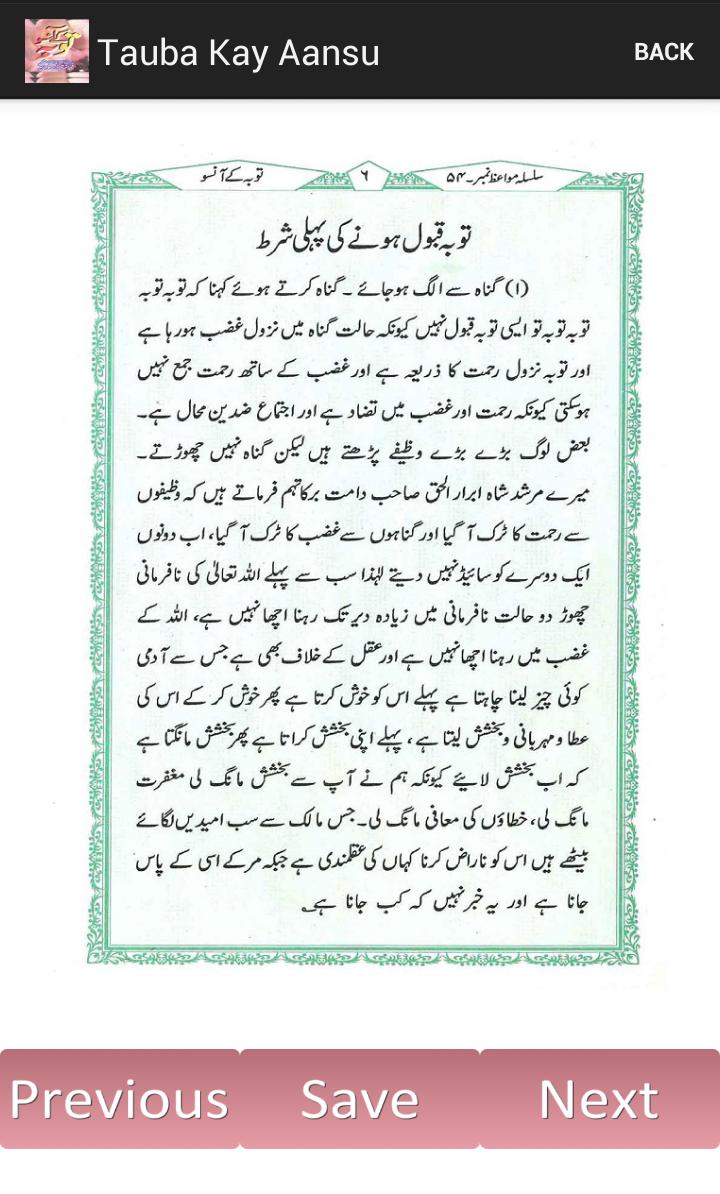 Tauba Kay Aansu
BACK
سلسلہ مواعظ نمبر۔۵۴
۶
توبہ کے آنسو
توبہ قبول ہونے کی پہلی شرط
(۱) گناہ سے الگ ہوجائے ۔ گناہ کرتے ہوئے کہنا کہ توبہ توبہ
توبہ توبہ تو ایسی توبہ قبول نہیں کیونکہ حالت گناہ میں نزول غضب ہورہا ہے
اور توبہ نزول رحمت کا ذریعہ ہے اور غضب کے ساتھ رحمت جمع نہیں
ہوسکتی کیونکہ رحمت اور غضب میں تضاد ہے اور اجتماع ضدین محال ہے۔
بعض لوگ بڑے بڑے وظیفے پڑھتے ہیں لیکن گناہ نہیں چھوڑتے۔
میرے مرشد شاہ ابرار الحق صاحب دامت برکاتہم فرماتے ہیں کہ وظیفوں
سے رحمت کا ٹرک آ گیا اور گناہوں سے غضب کا ٹرک آ گیا، اب دونوں
ایک دوسرے کو سائیڈ نہیں دیتے لہٰذا سب سے پہلے اللہ تعالیٰ کی نافرمانی
چھوڑ دو حالت نافرمانی میں زیادہ دیر تک رہنا اچھا نہیں ہے، اللہ کے
غضب میں رہنا اچھا نہیں ہے اور عقل کے خلاف بھی ہے جس سے آدمی
کوئی چیز لینا چاہتا ہے پہلے اس کو خوش کرتا ہے پھر خوش کر کے اس کی
عطا و مہربانی و بخشش لیتا ہے، پہلے اپنی بخشش کراتا ہے پھر بخشش مانگتا ہے
کہ اب بخشش لائیے کیونکہ ہم نے آپ سے بخشش مانگ لی مغفرت
مانگ لی، خطاؤں کی معافی مانگ لی۔ جس مالک سے سب امیدیں لگائے
بیٹھے ہیں اس کو ناراض کرنا کہاں کی عقلمندی ہے جبکہ مرکے اسی کے پاس
جانا ہے اور یہ خبر نہیں کہ کب جانا ہے۔
Previous
Save
Next